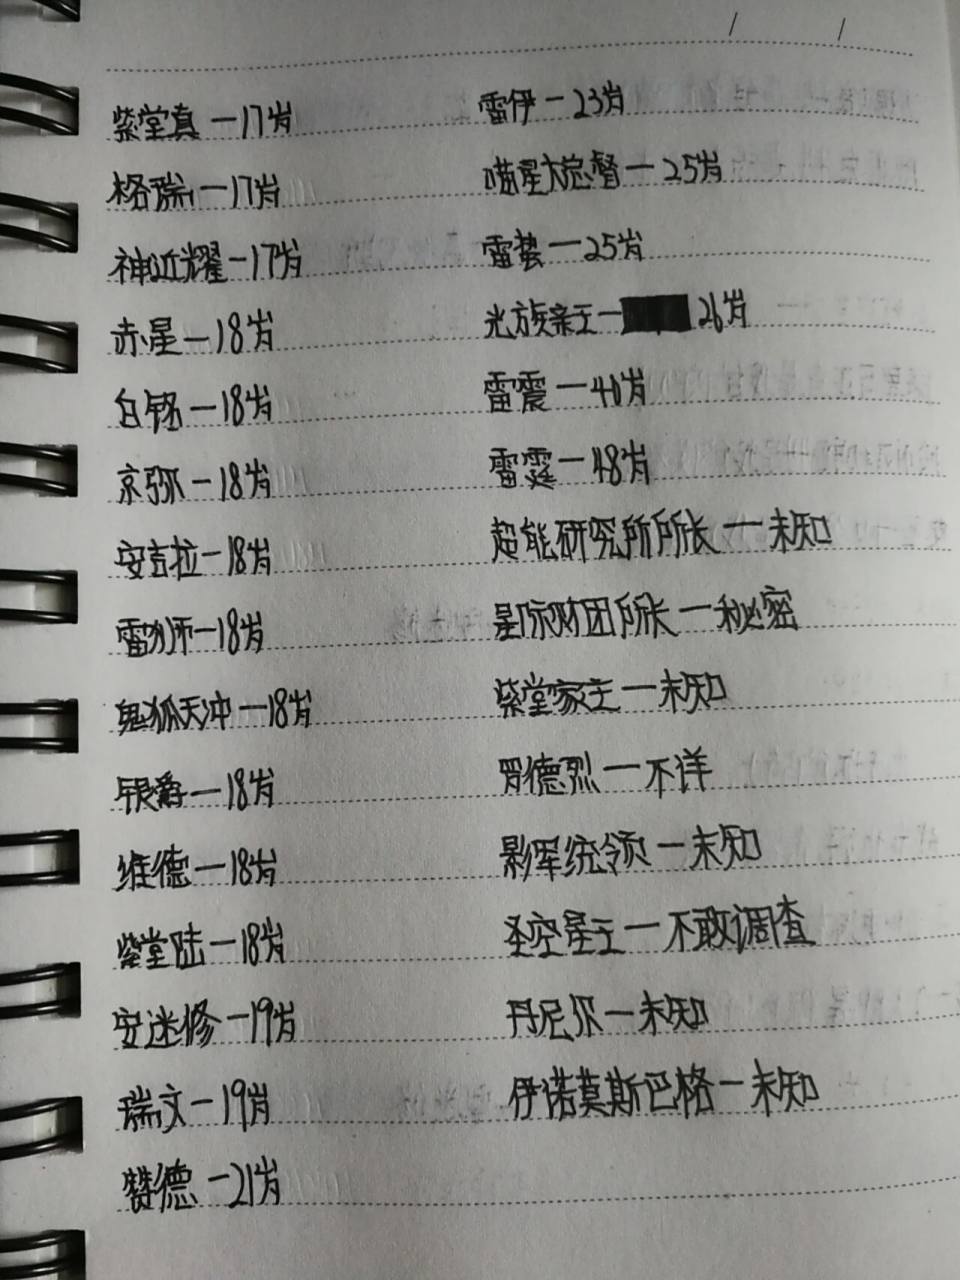 紫堂真—17岁
格瑞—17岁
神近耀—17岁
赤星—18岁
白钚—18岁
京弥—18岁
安吉拉—18岁
雷狮—18岁
鬼狐天冲—18岁
银爵—18岁
维德—18岁
紫堂陆—18岁
安迷修—19岁
瑞文—19岁
赞德—21岁
雷伊—23岁
喵星大总督—25岁
雷蛰—25岁
光族亲王—26岁
雷震—40岁
雷霆—48岁
超能研究所所长—未知
星际财团所长—秘密
紫堂家主—未知
罗德烈—不详
影军统领—未知
圣空星主—不敢调查
丹尼尔—未知
伊诺莫斯巴格—未知